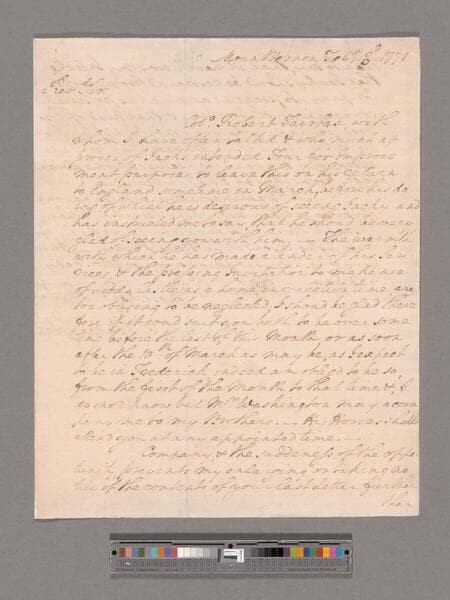 Mount Vernon Feb. 3d. 1771
Revd. Sir,
Colo. Robert Fairfax with
whom I have often talkd & who much ap
proves of Jacks intended Tour for Improve
ment purposes to leave this on his return
to England sometime in March, before his do
ing of which he is desirous of seeing Jacky and
has instructed me to say, that he shoud be very
glad of seeing you with him. — The warmth
with which he has made a tender of his Ser
vices, & the pressing Invitation to make use
of Leeds as a home, in vacation time, are
too obliging to be neglected. I shoud be glad there
fore if it coud suit you both to be over some
time before the last of this Month, or as soon
after the 10th. of March as may be, as I expect
to be in Frederick indeed am obliged to be so,
from the first of the Month to that time & I
do not know but Mrs. Washington may accom
pany me to my Brothers. — His Horses shall
attend you at any appointed time. —
Company & the suddeness of the oppor
tunity prevents my enlarging or taking no
tice of the contents of your last Letter further
than